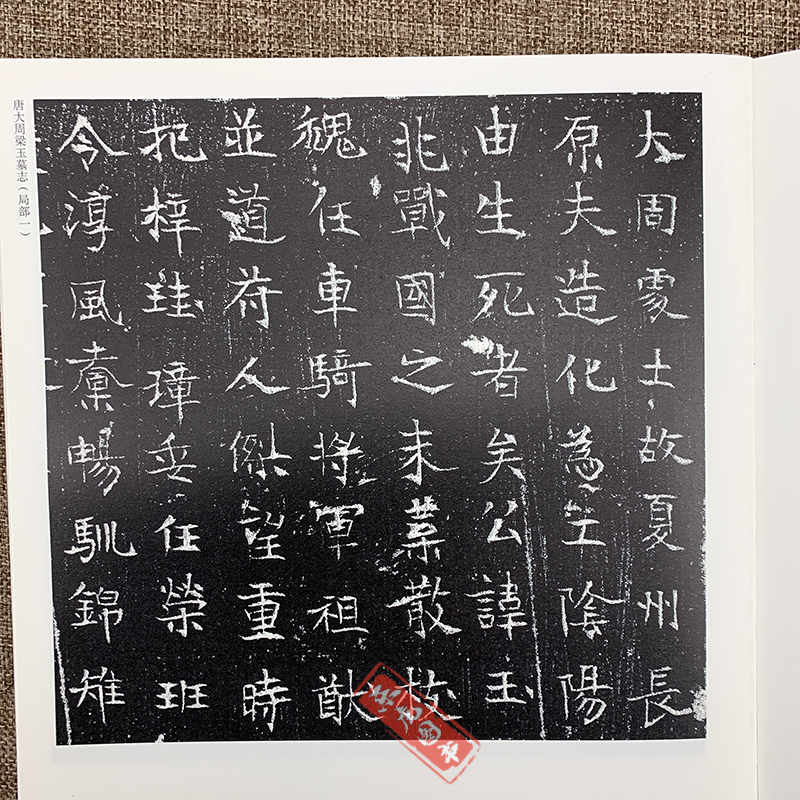 唐大周梁玉墓志（局部一）
大周處士故夏州長
原夫造化為主陰陽
由生死者矣公諱玉
北戰國之末葉散枝
魏任車騎將軍祖猷
並道苻人傑望重時
把梓珪璋手任榮班
令淳風稾暢馴錦雉